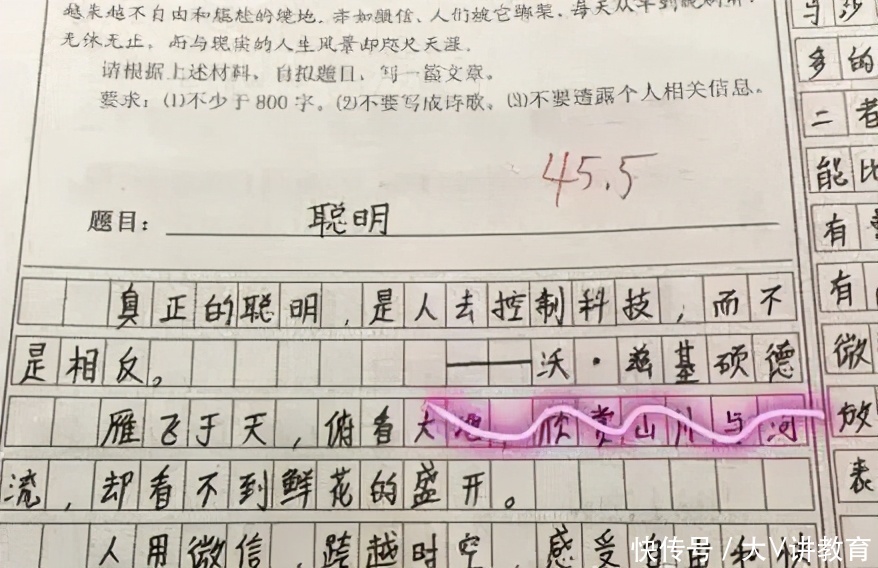 越来越不自由和尴尬的境地。亦如微信，人们被它绑架，每天从早到晚刷屏，
无休无止，而与现实的人生风景却咫尺天涯。
请根据上述材料，自拟题目，写一篇文章。
要求：(1)不少于800字。(2)不要写成诗歌。(3)不要透露个人相关信息。
45.5
题目：聪明
真正的聪明，是人去控制科技，而不
是相反。——沃·兹基硕德
雁飞于天，俯看大地，欣赏山川与河
流，却看不到鲜花的盛开。
人用微信，跨越时空，感受自由和
与沙
多的
二者
能比
有
有
微
放
表
快传号／大V讲教育